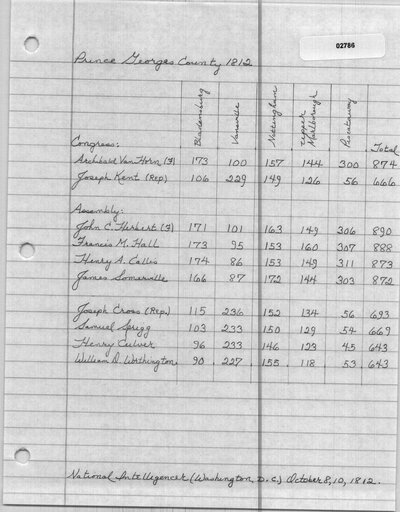 02786
Prince Georges County 1812
Bladensburg Vansville Nottingham Upper Marlborough Piscataway
Congress: Total
Archibald Van Horn (F) 173 100 157 144 300 874
Joseph Kent (Rep) 106 229 149 126 56 666
Assembly:
John C. Herbert (F) 171 101 163 149 306 890
Francis M. Hall 173 95 153 160 307 888
Henry A. Callis 174 86 153 149 311 873
James Somerville 166 87 172 144 303 872
Joseph Cross (Rep.) 115 236 152 134 56 693
Samuel Sprigg 103 233 150 129 54 669
Henry Culver 96 233 146 123 45 643
William D. Worthington 90 227 155 118 53 643
National Intelligencer (Washington, D.C.) October 8, 10, 1812.